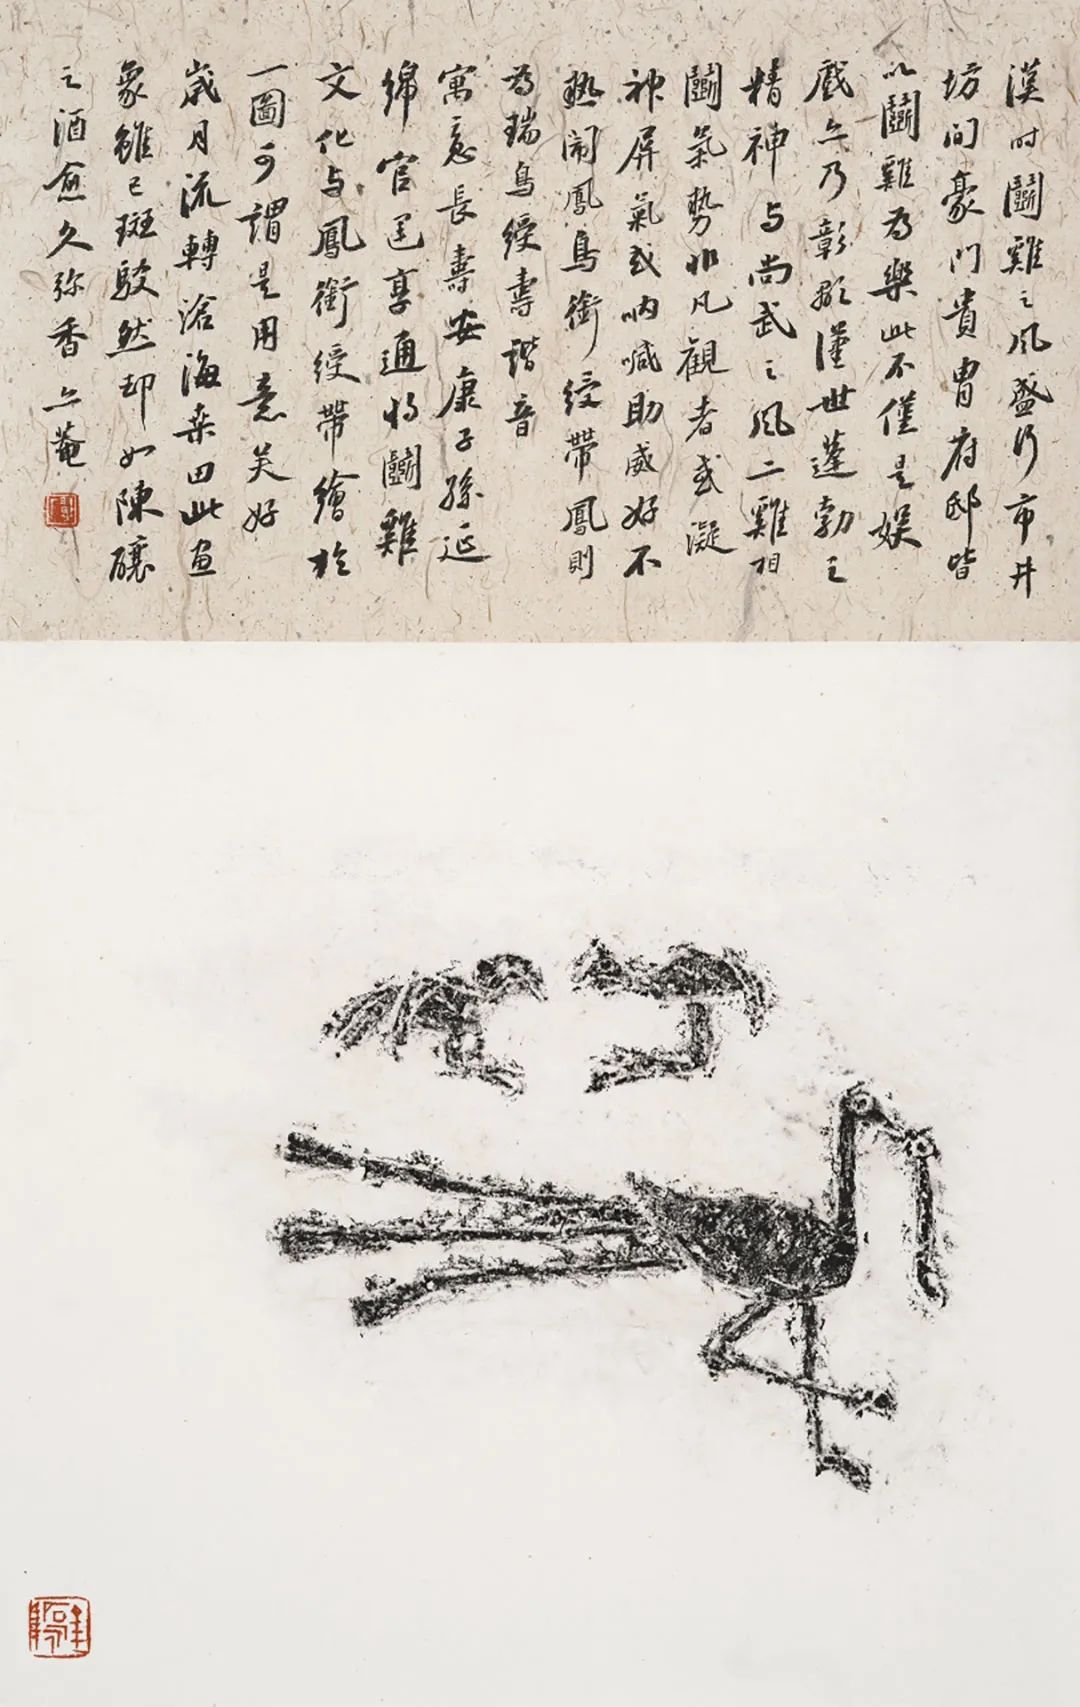 漢时鬭雞之風盛行市井
坊间豪门貴胄府邸皆
以鬭雞为樂此不僅是娱
戲亦乃彰顯漢世蓬勃之
精神与尚武之風二雞相
鬭氣勢非凡觀者或凝
神屏氣或呐喊助威好不
热闹鳳鳥銜綬帶鳳則
为瑞鳥綬壽諧音
寓意長壽安康子孫延
綿官运亨通将鬭雞
文化与鳳銜綬帶繪於
一圖可謂是用意美好
歲月流轉滄海桑田此画
象雖已斑駁然却如陳釀
之酒愈久弥香亦菴